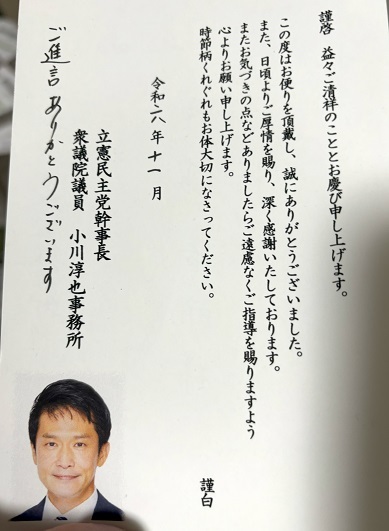 謹啓　益々ご清祥のこととお慶び申し上げます。
この度はお便りを頂戴し、誠にありがとうございました。
また、日頃よりご厚情を賜り、深く感謝いたしております。
またお気づきの点などありましたらご遠慮なくご指導を賜りますよう
心よりお願い申し上げます。
時節柄くれぐれもお体大切になさってください。
謹白
令和六年十一月
立憲民主党幹事長
衆議院議員　小川淳也事務所
ご進言ありがとうございます